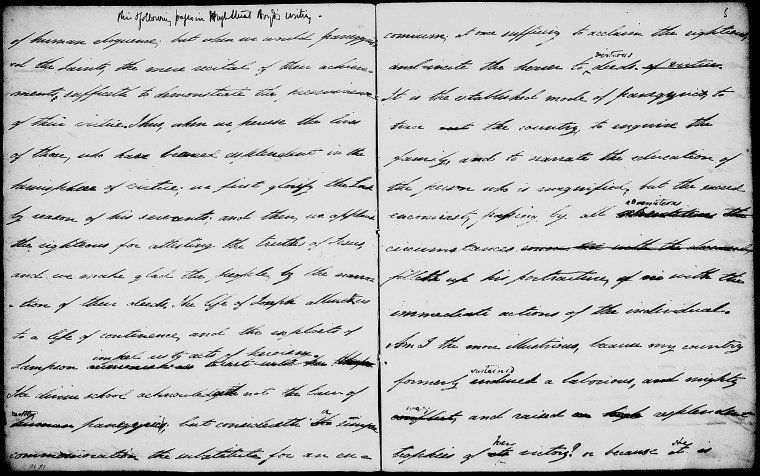 This & following pages in Hugh Stuart Boyd's writing.
of human eloquence; but when we would panegyrize
the Saints, the mere recital of their achieve-
ments, sufficeth to demonstrate the
of their virtue. Thus, when we peruse the lives
of those, who have beamed resplendent in the
hemisphere of virtue; we first glorify the Lord
by reason of his servants; and then, we applaud
the righteous for attesting the truths of Jesus;
and we make glad the people, by the narra-
-tion of their deeds. The life of Joseph allureth us
to a life of continence, and the exploits of
impel us to acts of heroism.
Sampson
The divine school acknowledgeth not the laws of
earthly
human panegyric, but considereth a
commemoration the substitute for an en-
5
comium; at once sufficing to acclaim the righteous,
virtuous
and incite the hearer to deeds of virtue.
It is the established mode of panegyric, to
trace out the country, to enquire the
family, and to narrate the education of
the person who is magnified; but the sacred
adventitious
encomiast, passing by all the
circumstances
filleth up his portraiture, with the
immediate actions of the individual.
Am I the more illustrious, because my country
sustained
formerly endured a laborious, and mighty
war,
conflict, and raised resplendent
her
trophies of its victory? or because it is